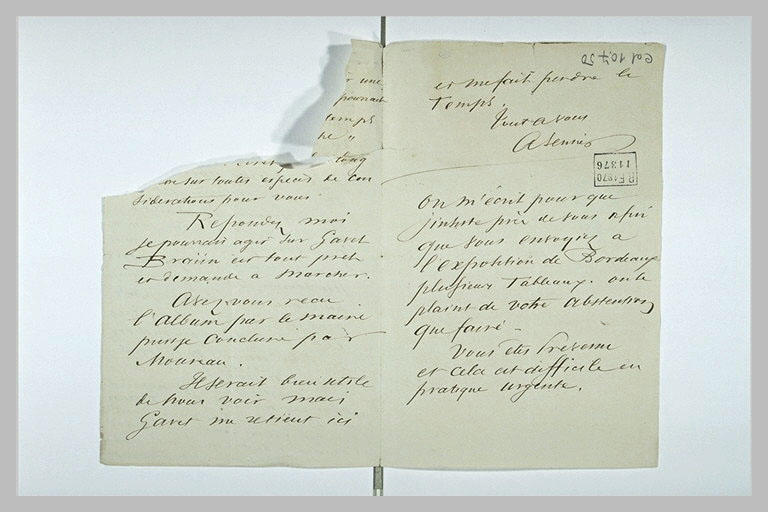 r une
pourrait
temps
he "
long
on sur toutes especes de con
siderations pour vous
Repondez moi
je pourrai agir sur Gavet
Brain est tout pret
et demande a marcher.
Avez vous recu
l'album par le maire
puis je Conclure par
Moureau.
Il serait bien utile
de nous voir mais
Gavet me retient ici
et me fait perdre le
Temps.
Tout a vous
ASensier
On m'écrit pour que
j'insiste près de vous afin
que vous envoyiez a
l'exposition de Bordeaux
plusieurs Tableaux. on se
plaint de votre abstention
que faire -
Vous êtes Prévenu
et cela est difficile en
pratique urgente.
Cat 10.7.50
R.F 1870
11376